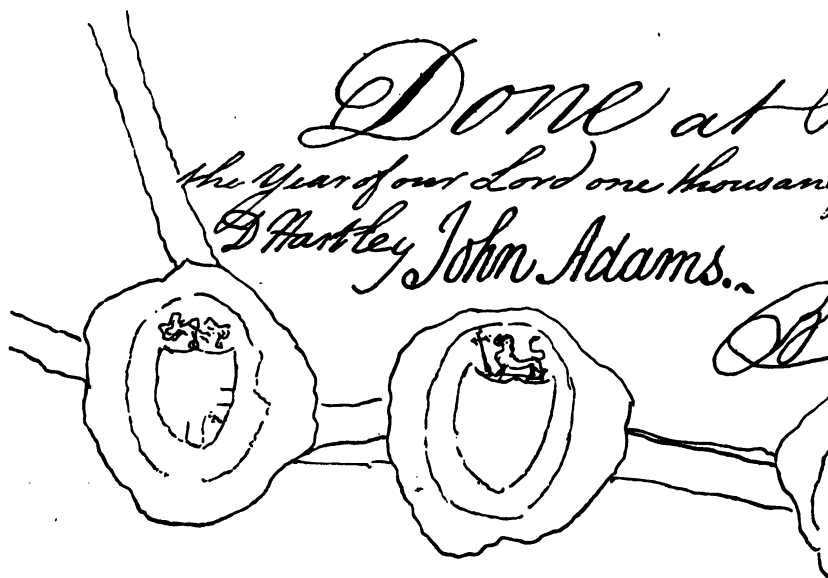 Done at
the Year of our Lord one thousand
D Hartley John Adams.